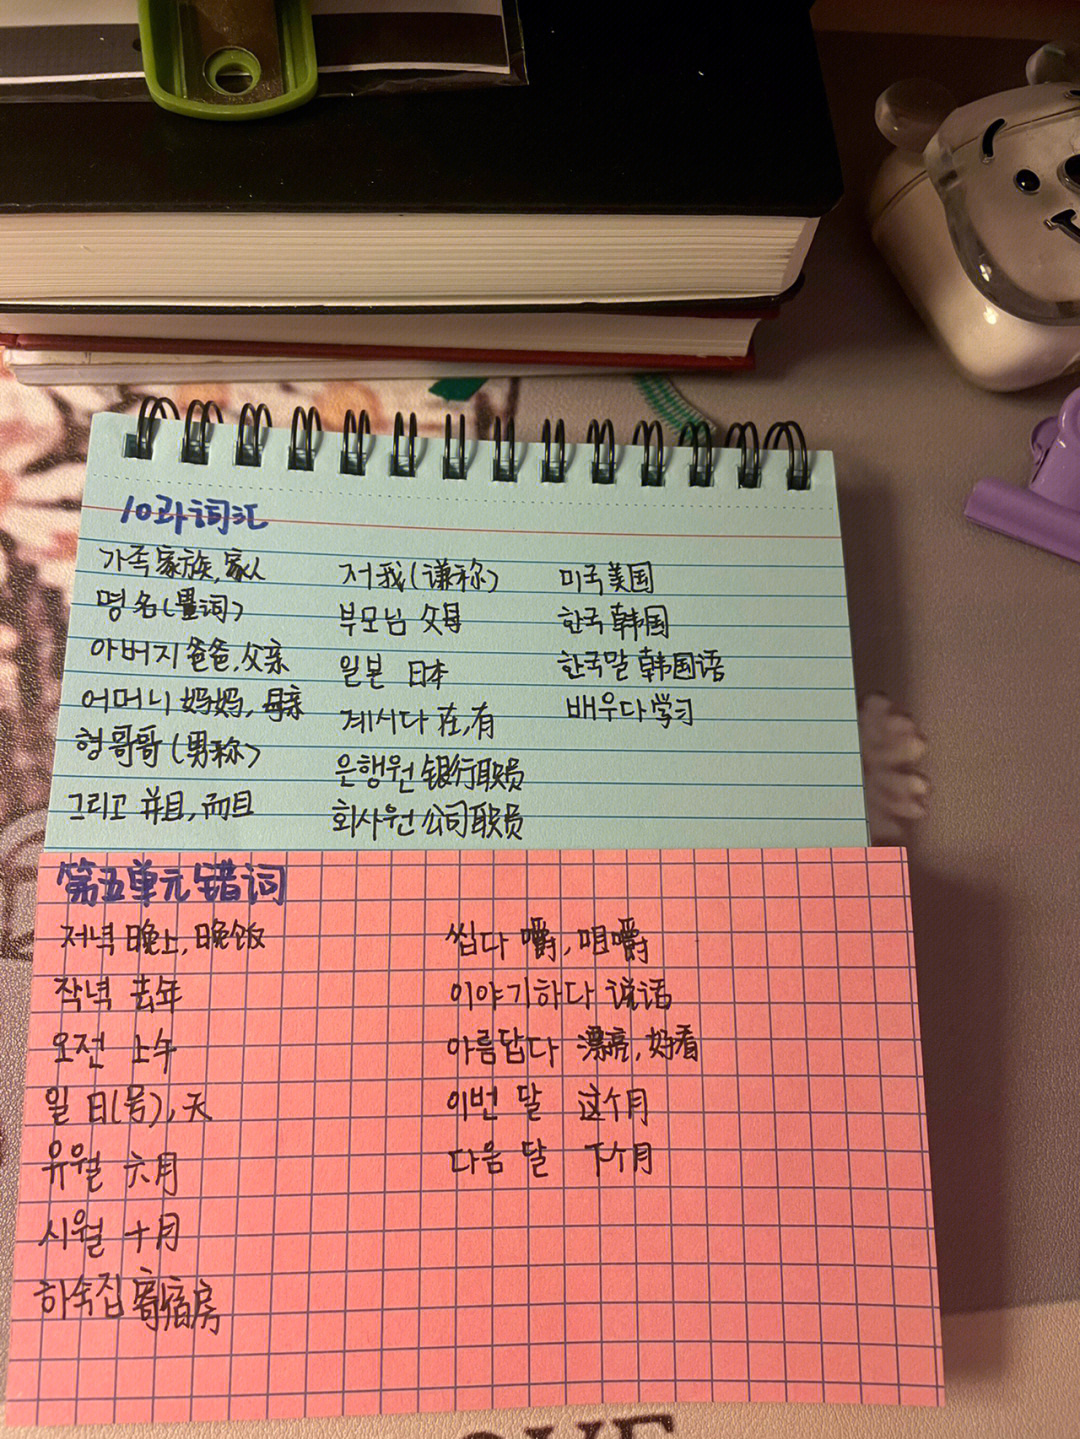 10과词汇
가족 家族,家人
명 名(量词)
아버지 爸爸,父亲
어머니 妈妈,母亲
형 哥哥(男称)
그리고 并且,而且
저 我(谦称)
부모님 父母
일본 日本
계시다 在,有
은행원 银行职员
회사원 公司职员
미국 美国
한국 韩国
한국말 韩国语
배우다 学习
第五单元错词
저녁 晚上,晚饭
작녁 去年
오전 上午
일 日(号),天
유월 六月
시월 十月
하숙집 寄宿房
씹다 嚼,咀嚼
이야기하다 说话
아름답다 漂亮,好看
이번 달 这个月
다음 달 下个月